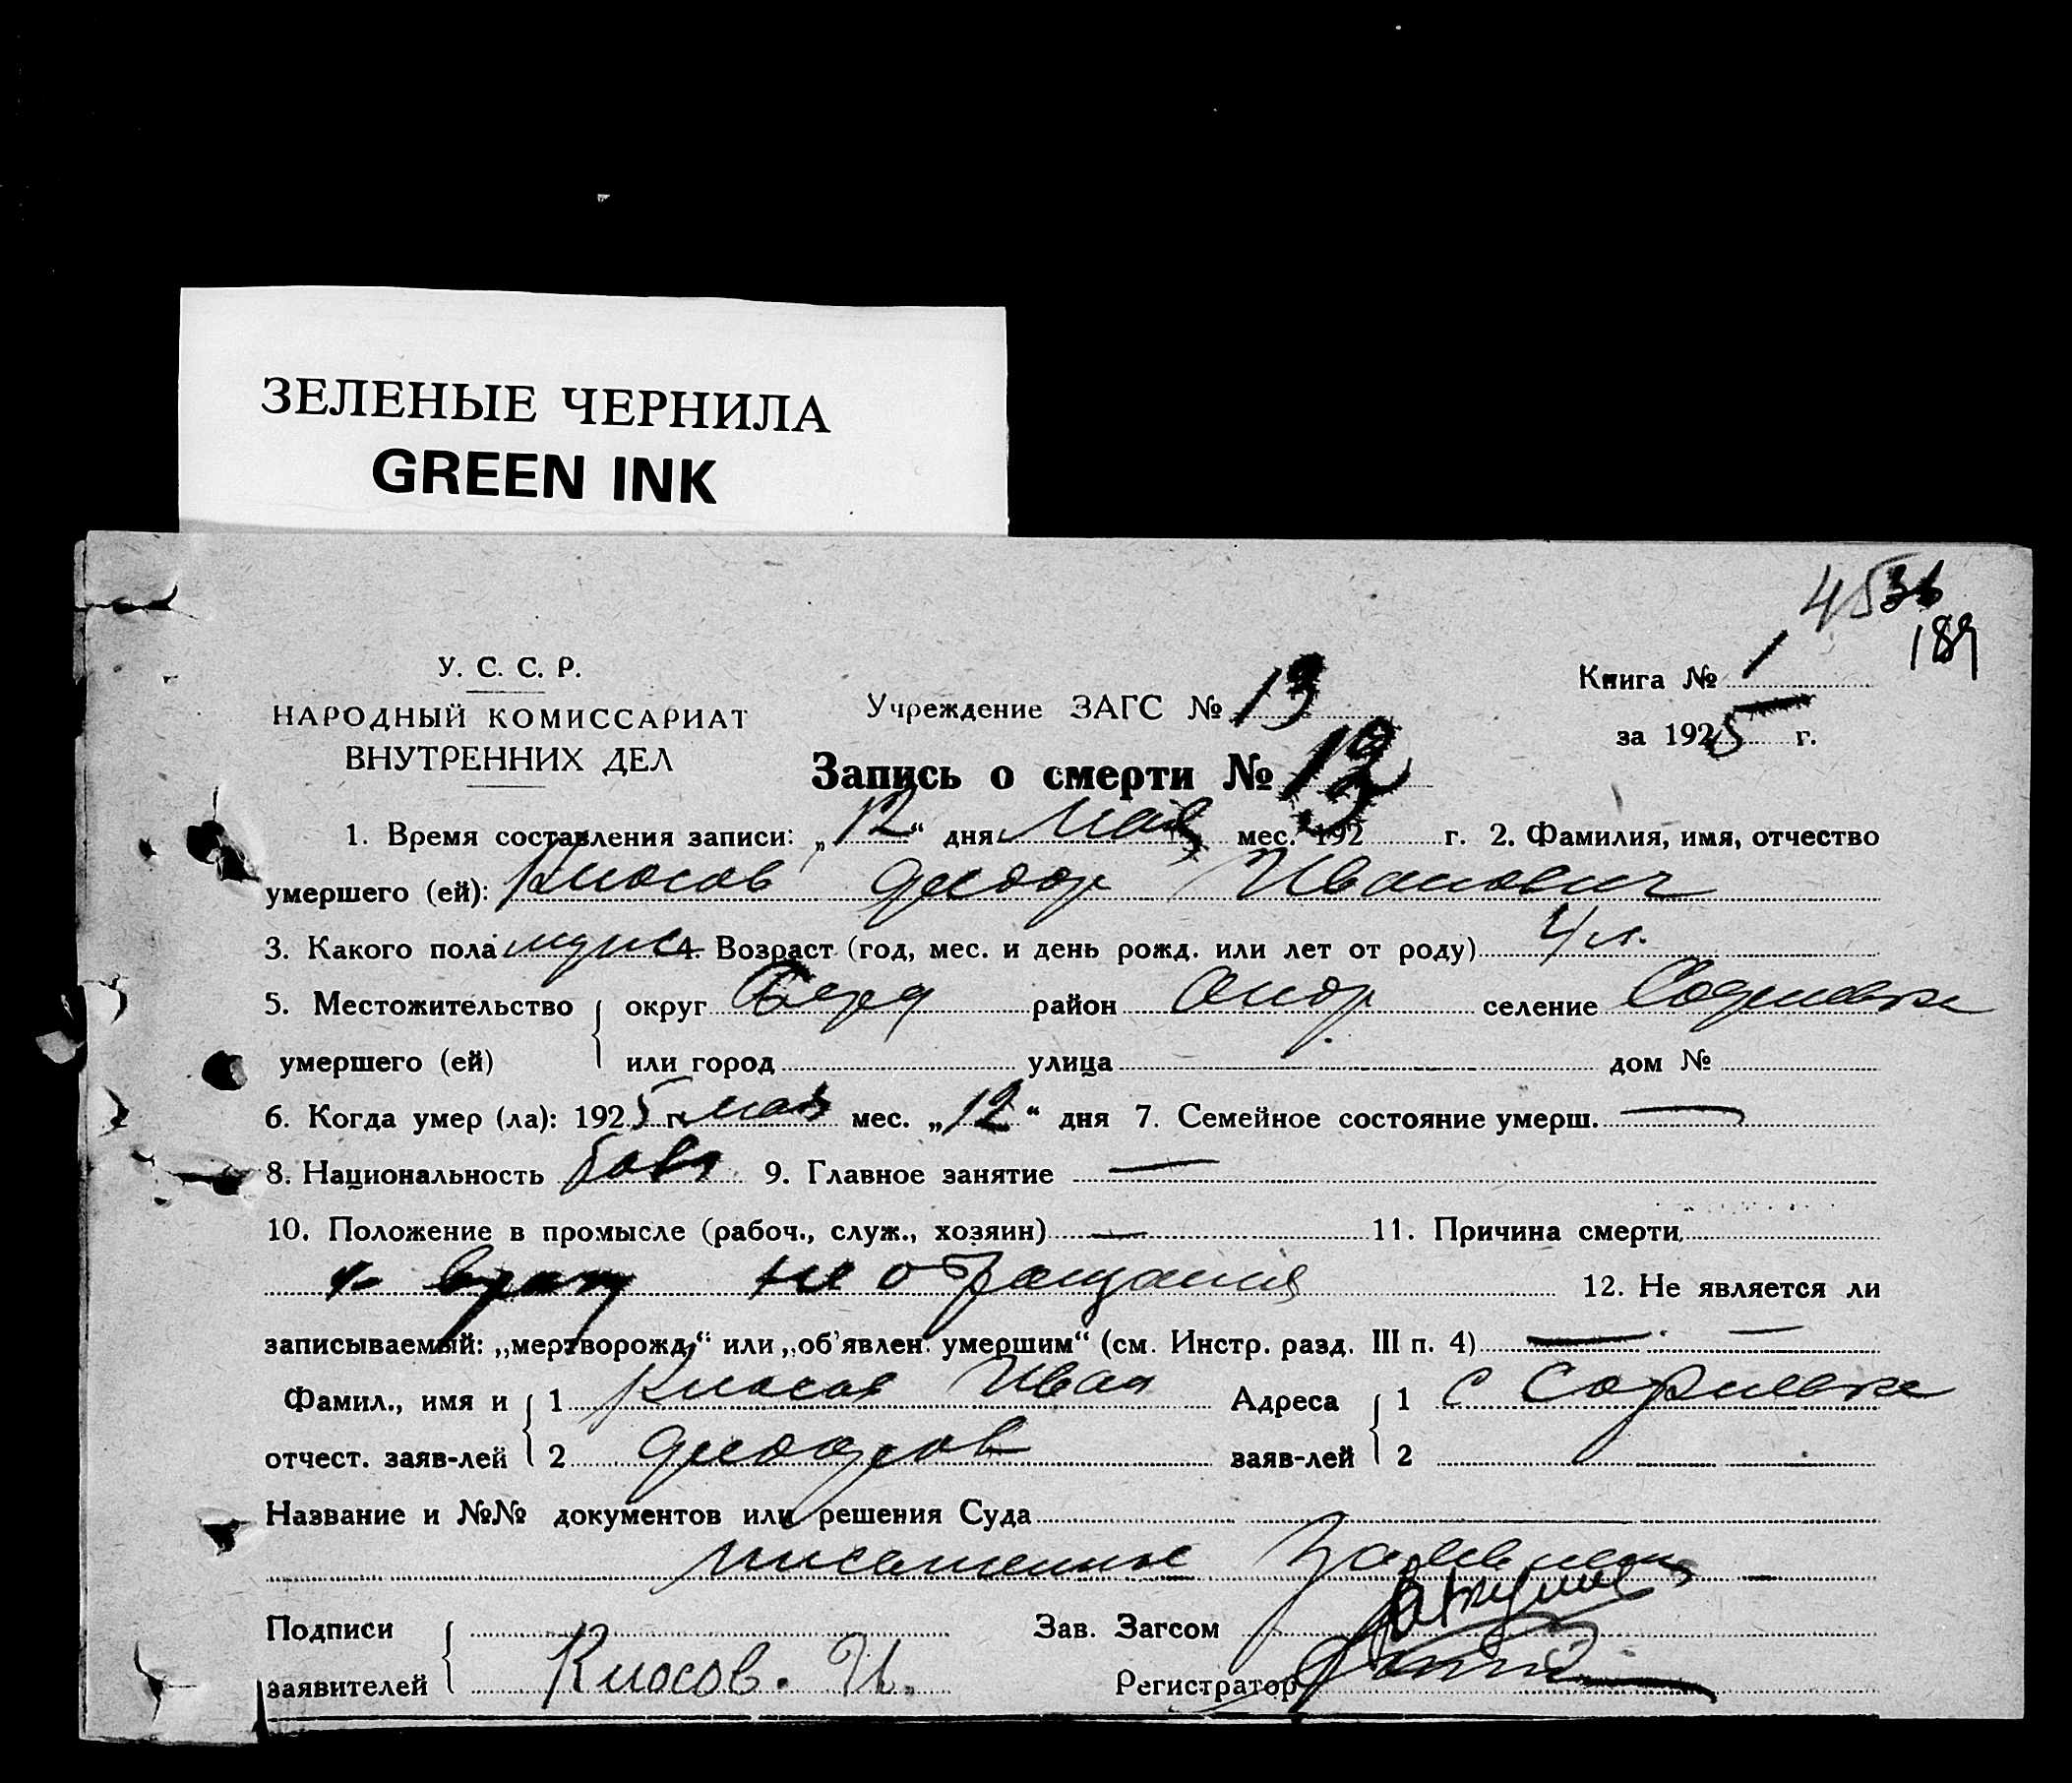 ЗЕЛЕНЫЕ ЧЕРНИЛА
GREEN INK
4536
189
У. С. С. Р.
НАРОДНЫЙ КОМИССАРИАТ
ВНУТРЕННИХ ДЕЛ
Учреждение ЗАГС № 13
Книга № 1
за 1925 г.
Запись о смерти №
1. Время составления записи: „12“ дня мая мес. 192 г. 2. Фамилия, имя, отчество
умершего (ей): Киосов Федор Иванович
3. Какого пола муж 4. Возраст (год, мес. и день рожд. или лет от роду) 4 л.
5. Местожительство округ район селение
умершего (ей) или город улица дом №
6. Когда умер (ла): 1925 г. мая мес. „12“ дня 7. Семейное состояние умерш. —
8. Национальность 9. Главное занятие —
10. Положение в промысле (рабоч., служ., хозяин) — 11. Причина смерти
к врачу не обращался 12. Не является ли
записываемый: „мертворожд.“ или „об'явлен. умершим“ (см. Инстр. разд. III п. 4) — —
Фамил., имя и 1 Киосов Иван Адреса 1 с
отчест. заяв-лей 2 Федоров заяв-лей 2
Название и №№ документов или решения Суда
Подписи Зав. Загсом
заявителей Киосов. И. Регистратор